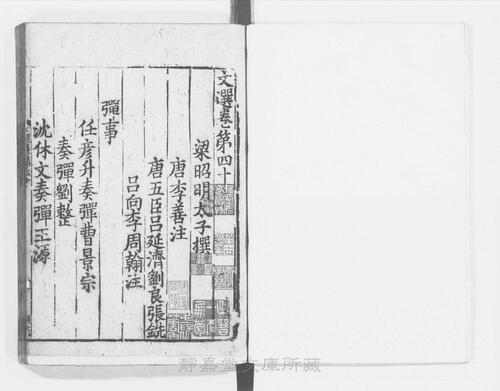 文選卷第四十
梁昭明太子撰
唐李善注
唐五臣吕延濟劉良張銑
吕向李周翰注
彈事
任彦升奏彈曹景宗
奏彈劉整
沈休文奏彈王源
靜嘉堂文庫所藏